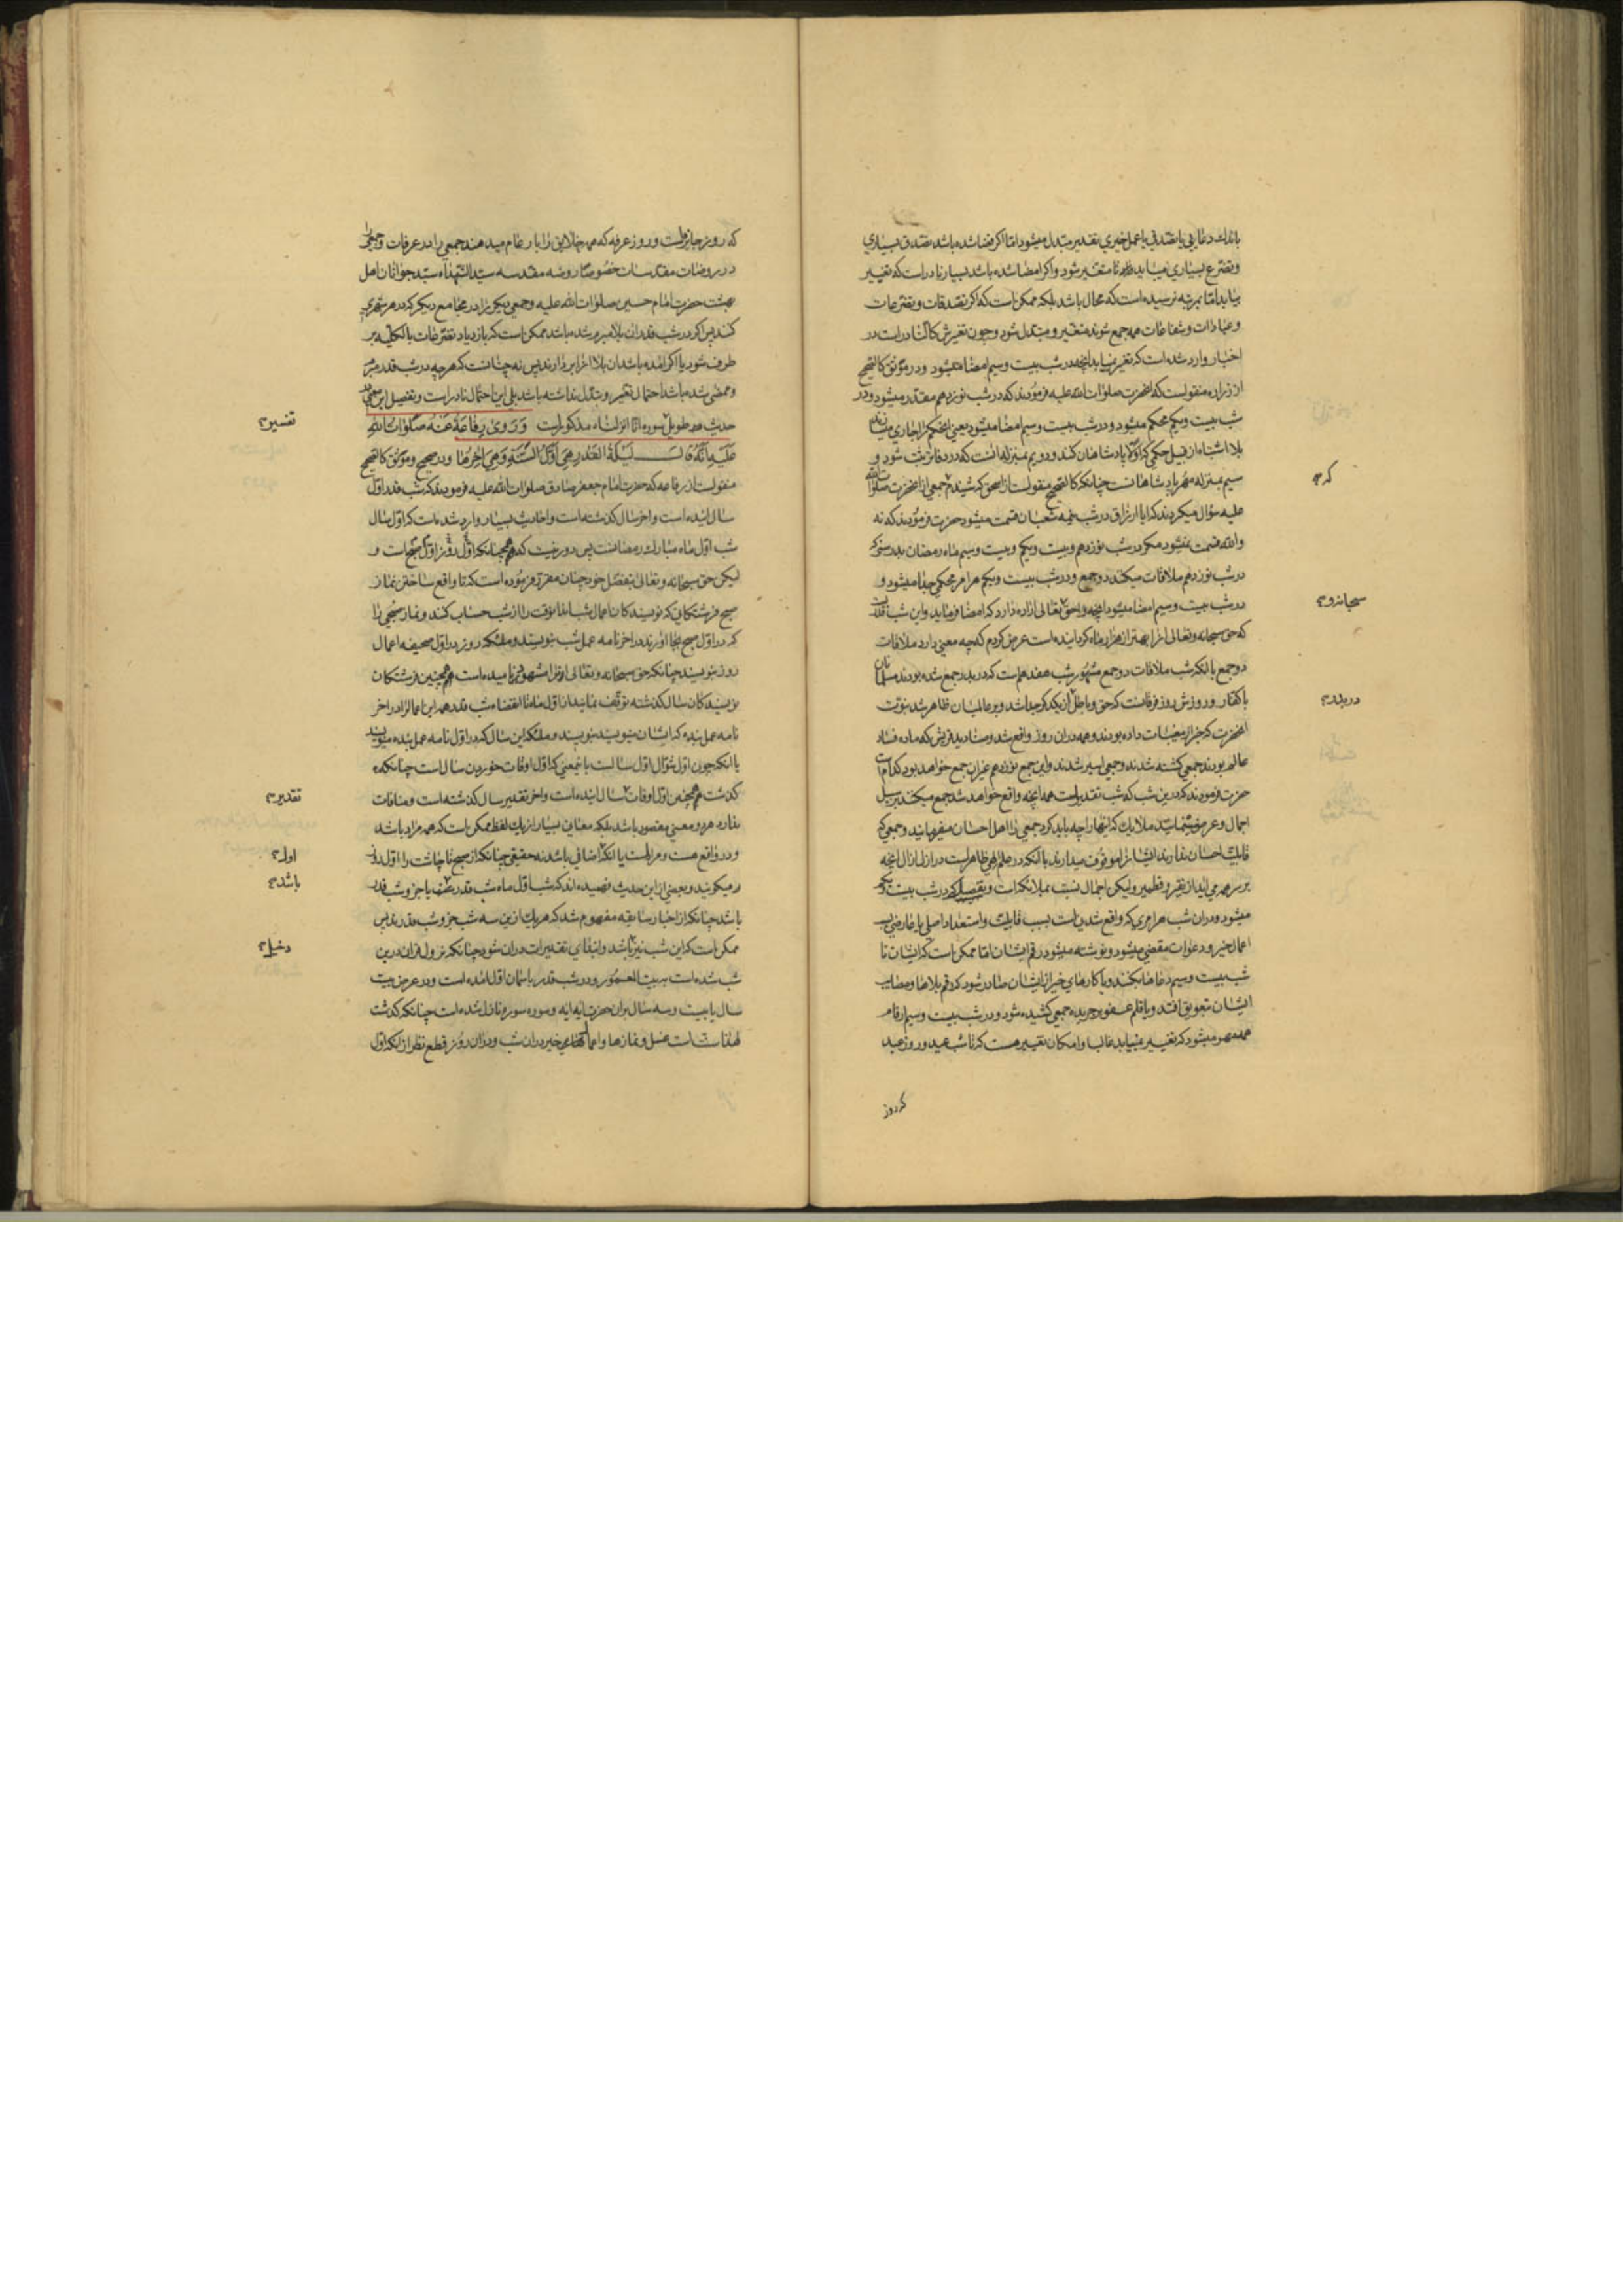 باندك دعايى يا تصدقى يا عمل خيرى تقدير مبتدل ميشود اما اكر قضا شده باشد تصدق بسيارى
و تضرع بسيارى ميبايد تا متغير شود و اكر امضا شده باشد بسيار نادر است كه تغيير
بيابد اما بمرتبه نرسيده است كه محال باشد بلكه ممكن است كه اكر تصدقات و تضرعات
و عبادات و شفاعات همه جمع شوند متغير و مبتدل شود و چون تغيرش كالنادر است در
اخبار وارد شده است كه تغير نميابد انچه در شب بيست و سيم امضا ميشود و در موثق كالصحيح
از زراره منقولست كه انحضرت صلوات الله عليه فرمودند كه در شب نوزدهم مقدر ميشود و در
شب بيست و يكم محكم ميشود و در شب بيست و سيم امضا ميشود يعنى
بلا اشتباه از قبيل حكمى كه اولا پادشاهان كنند و دويم بمنزله انست كه در دفاتر ثبت شود و
سيم بمنزله مهر پادشاهانست چنانكه كالصحيح منقولست از اسحق كه شنيدم جمعى از انحضرت صلوات الله
كه
عليه سؤال ميكردند كه ايا ارزاق در شب نيمه شعبان قسمت ميشود حضرت فرمودند كه نه
والله قسمت نميشود مكر در شب نوزدهم و بيست و يكم و بيست و سيم ماه رمضان بدرستى كه
در شب نوزدهم ملاقات ميكنند دو جمع و در شب بيست و يكم هر امر محكمى جدا ميشود و
در شب بيست و سيم امضا ميشود انچه حق تعالى اراده دارد كه امضا فرمايد و اين شب قدريست
سبحانه و
كه حق سبحانه و تعالى انرا بهتر از هزار ماه كردانيده است عرض كردم كه چه معنى دارد ملاقات
دو جمع با انكه شب ملاقات دو جمع مشهور شب هفدهم است كه در بدر جمع شده بودند مسلمانان
با كفار و روزش روز فرقانست كه حق و باطل از يكديكر جدا شد و بر عالميان ظاهر شد نبوت
در بدر
انحضرت كه خبر از مغيبات داده بودند و همه در ان روز واقع شد و صناديد قريش كه ماده فساد
عالم بودند جمعى كشته شدند و جمعى اسير شدند و اين جمع نوزدهم غير ان جمع خواهد بود كدام است
حضرت فرمودند كه در اين شب كه شب تقدير است همه انچه واقع خواهد شد جمع ميكنند بر سبيل
اجمال و عرض ملايك كه اينها را چه بايد كرد جمعى را اهل احسان ميفرمايند و جمعى كه
قابليت احسان ندارند ايشانرا موقوف ميدارند با انكه در علم الهى ظاهر است در ازل ازال انچه
بر سر هر مى ايد از نقير و قطمير و ليكن اجمال نسبت بملائكه است و تفصيل در شب بيست و يكم
ميشود و در ان شب هر امرى كه واقع شدنيست بسبب قابليت و استعداد اصلى يا عارضى بسبب
اعمال خير و دعوات مقضى ميشود و نوشته ميشود رقم ايشان اما ممكن است كه ايشان تا
شب بيست و سيم دعاها بكنند و يا كارهاى خير از ايشان صادر شود كه رقم بلاها و مصايب
ايشان بتعويق افتد و يا قلم عفو بر جريده جمعى كشيده شود و در شب بيست و سيم ارقام
همه مهر ميشود كه تغيير نميابد غالبا و امكان تغيير هست كه تا شب عيد و روز عيد
كه روز
كه روز جايزهاست و روز عرفه كه همه خلايق را بار عام ميدهند جمعى را در عرفات و جمعى را
در روضات مقدسات خصوصا روضه مقدسه سيد الشهداء سيد جوانان اهل
بهشت حضرت امام حسين صلوات الله عليه و جمعى ديكر را در مجامع ديكر كه در هر شهرى
كنند پس اكر در شب قدر ان بلا مبرم شده باشد ممكن است كه بازدياد تضرعات بالكليه بر
طرف شود يا اكر امده باشد ان بلا انرا بردارند پس نه چنانست كه هر چه در شب قدر مبرم
و ممضى شده باشد احتمال تغير و تبدل نداشته باشد بلى اين احتمال نادر است و تفصيل اين معنى در
حديث طويل سوره انا انزلناه مذكور است وَ رَوىٰ رِفاعَةُ عَنْهُ صَلَواتُ اللهِ
تفسير
عَلَيْهِ اَنَّهُ قالَ لَيْلَةُ الْقَدْرِ هِىَ اَوَّلُ السَّنَةِ وَ هِىَ اخِرُها و در صحيح و موثق كالصحيح
منقولست از رفاعه كه حضرت امام جعفر صادق صلوات الله عليه فرمودند كه شب قدر اول
سال اينده است و اخر سال كذشته است و احاديث بسيار وارد شده است كه اول سال
شب اول ماه مبارك رمضانست پس دور نيست كه همچنانكه اول روز اول صبح است و
ليكن حق سبحانه و تعالى بتفضل خود چنان مقرر فرموده است كه تا واقع ساختن نماز
صبح فرشتكانى كه نويسندكان اعمال شب اند تا انوقت را از شب حساب كنند و نماز صبحى را
كه در اول صبح بجا اورند در اخر نامه عمل شب بنويسند و ملئكه روز در اول صحيفه اعمال
روز بنويسند چنانكه حق سبحانه و تعالى انرا مشهود ناميده است همچنين فرشتكان
نويسندكان سال كذشته توقف نمايند از اول ماه تا انقضاء شب قدر همه اين اعمال را در اخر
نامه عمل بنده كه ايشان مينويسند بنويسند و ملئكه اين سال كه در اول نامه عمل بنده مينويسند
يا انكه چون اول شوال اول سالست باينمعنى كه اول اوقات خوردن سال است چنانكه
كذشت همچنين اول اوقات سال اينده است و اخر تقدير سال كذشته است و منافات
تقدير
ندارد هر دو معنى مقصود باشد بلكه معانى بسيار از يك لفظ ممكن است كه همه مراد باشد
و در واقع هست و مراد است يا انكه اضافى باشد نه حقيقى چنانكه از صبح تا چاشت را اول روز
اول
ميكويند و بعضى از اين حديث فهميده اند كه شب اول ماه شب قدر يا جزو شب قدر
باشد
باشد چنانكه از اخبار سابقه مفهوم شد كه هر يك ازين سه شب جزو شب قدرند پس
ممكن است كه اين شب نيز باشد و ابتداى تقديرات در ان شود چنانكه نزول قران درين
دخيل
شب شده است به بيت المعمور و در شب قدر باسمان اول امده است و در عرض بيست
سال يا بيست و سه سال بران حضرت ايه ايه و سوره سوره نازل شده است چنانكه كذشت
لهذا سنت است غسل و نمازها و اعمالهاى خير در ان شب و در ان روز قطع نظر از انكه اول